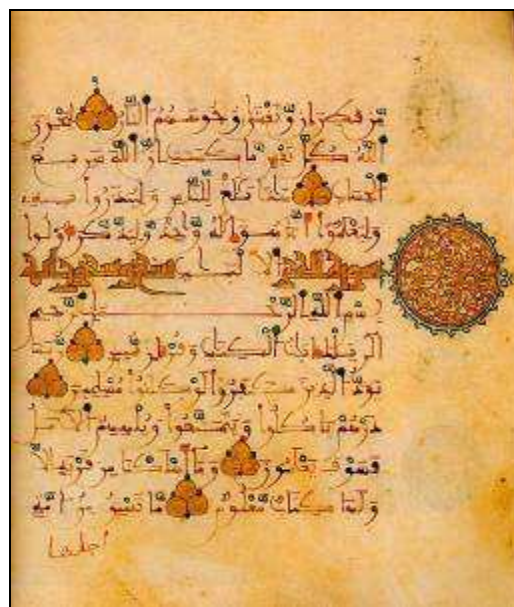 من قطران وتغشى وجوههم النار ليجزي
الله كل نفس ما كسبت ان الله سريع
الحساب هذا بلغ للناس ولينذروا به
وليعلموا انما هو اله واحد وليذكر اولوا
سورة الحجر الالباب
بسم الله الرحمن الرحيم
الر تلك ايت الكتب وقران مبين ربما
يود الذين كفروا لو كانوا مسلمين
ذرهم ياكلوا ويتمتعوا ويلههم الامل
فسوف يعلمون وما اهلكنا من قرية الا
ولها كتاب معلوم ما تسبق من امة
اجلها